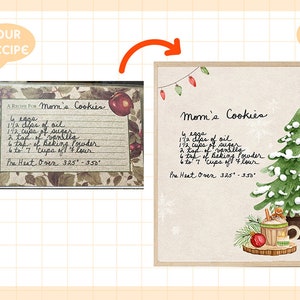 OUR
RECIPE
A Recipe For: Mom's Cookies
6 eggs
1 1/2 cups of oil
1 1/2 cups of sugar
2 tsp of vanilla
6 tsp of Baking Powder
6 to 7 cups of flour
Pre Heat Oven 325° - 350°
Mom's Cookies
6 eggs
1 1/2 cups of oil
1 1/2 cups of sugar
2 tsp of vanilla
6 tsp of Baking Powder
6 to 7 cups of flour
Pre Heat Oven 325° - 350°